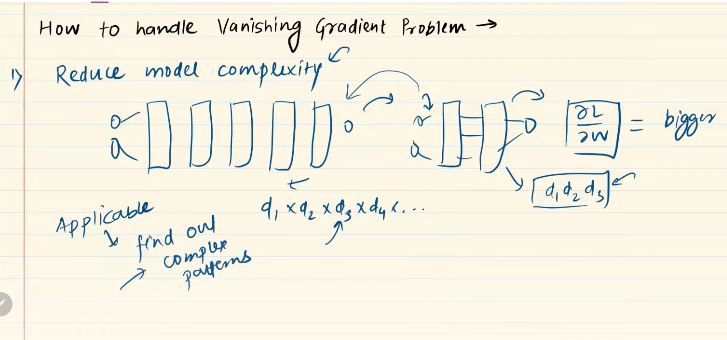 How to handle Vanishing Gradient Problem →
1) Reduce model complexity
∂L/∂W = bigger
d₁ d₂ d₃
d₁ × d₂ × d₃ × d₄ × ...
Applicable
find out
complex
patterns